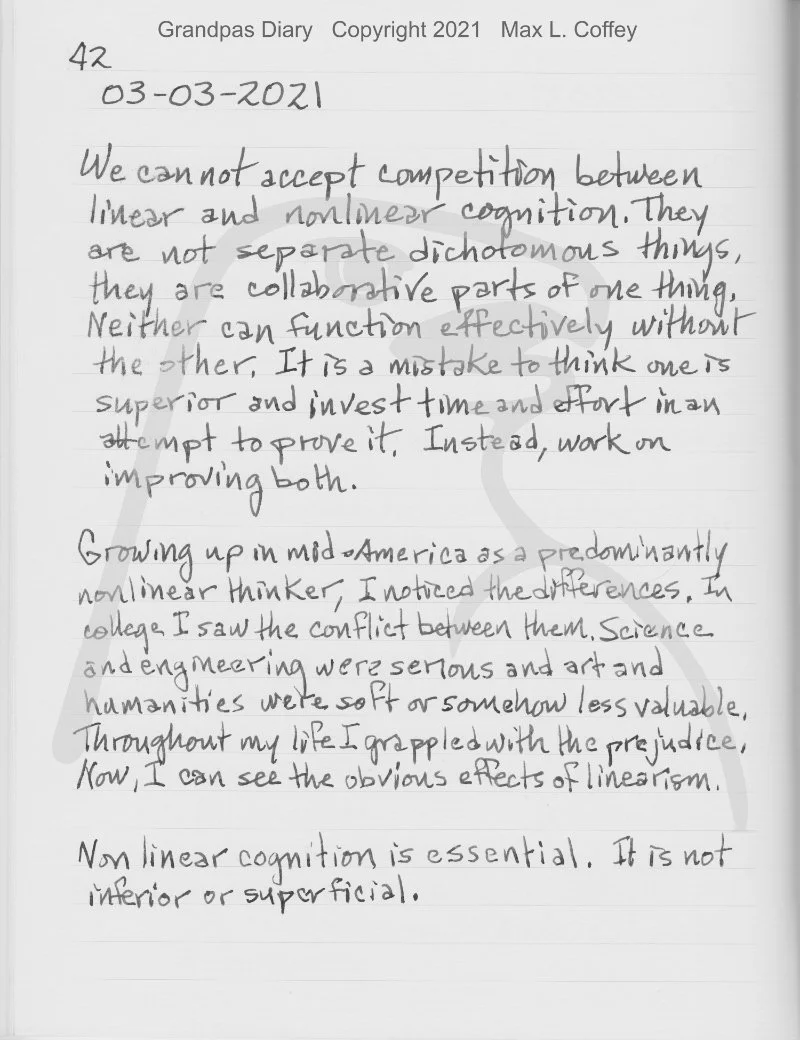 Grandpas Diary Copyright 2021 Max L. Coffey
42
03-03-2021
We cannot accept competition between
linear and nonlinear cognition. They
are not separate dichotomous things,
they are collaborative parts of one thing.
Neither can function effectively without
the other. It is a mistake to think one is
superior and invest time and effort in an
attempt to prove it. Instead, work on
improving both.
Growing up in mid-America as a predominantly
nonlinear thinker, I noticed the differences. In
college I saw the conflict between them. Science
and engineering were serious and art and
humanities were soft or somehow less valuable.
Throughout my life I grappled with the prejudice.
Now, I can see the obvious effects of linearism.
Non linear cognition is essential. It is not
inferior or superficial.